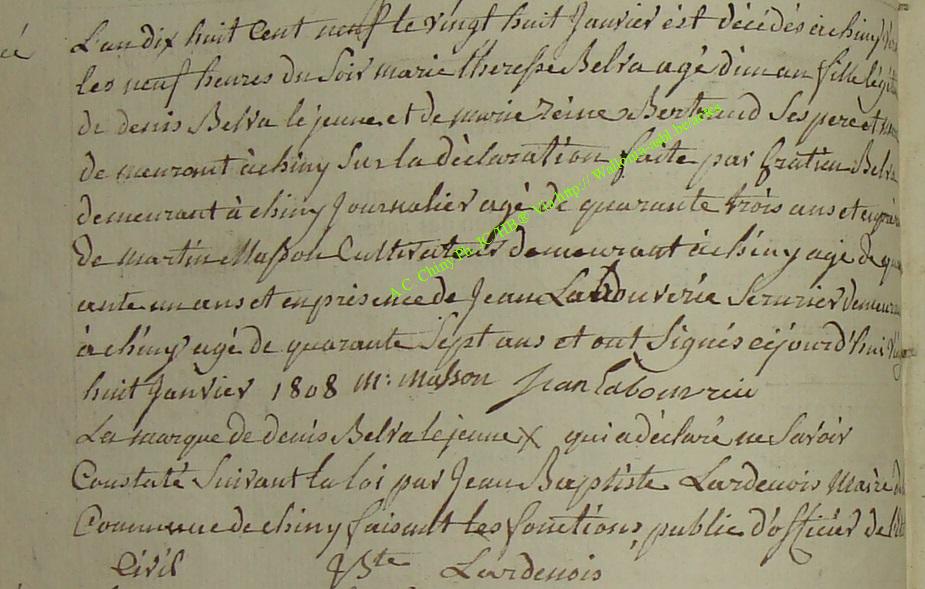 L'an dix huit Cent neuf le vingt huit Janvier est décédés a chiny
les neuf heures du Soir marie theresse Belva agé d'un an fille
de denis Belva le jeune et de marie Bertrand Ses pere et
de meurant à chiny Sur la déclaration faite par gratien Belva
demeurant à chiny Journalier agé de quarante trois ans et
de martin Masson Cultivateur demeurant à chiny agé de
ante un ans et en présence de Jean Labouverie Serurier
à chiny agé de quarante Sept ans et ont Signés
huit Janvier 1808 M: Masson Jean labouverie
La marque de denis Belva le jeune X qui a déclaré ne Savoir
Constaté Suivant la loi par Jean Baptiste Lardenois Maire
Commune de chiny faisant les fonctions public d'officier de
Civil Bte Lardenois
A.C. Chiny